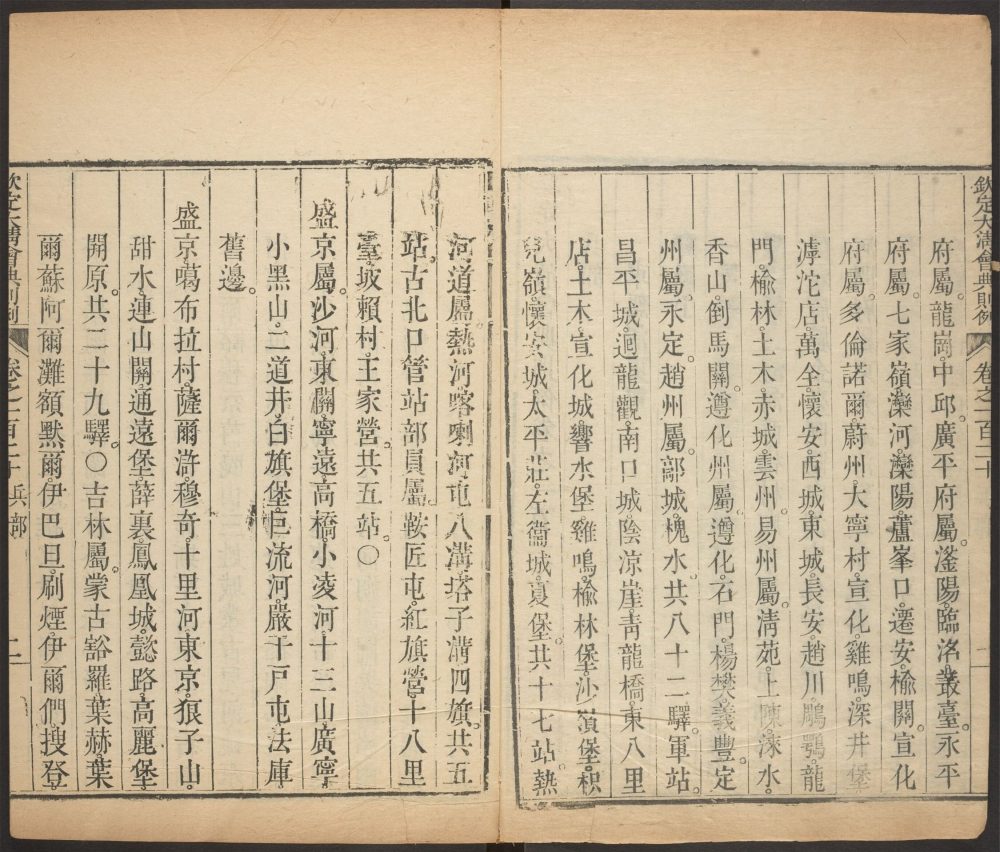 欽定大清會典則例 卷之一百二十
府屬龍崗中邱廣平府屬滏陽臨洺叢臺永平
府屬七家嶺灤河灤陽蘆峯口遷安榆關宣化
府屬多倫諾爾蔚州大寧村宣化雞鳴深井堡
滹沱店萬全懷安西城東城長安趙川鵰鶚龍
門榆林土木赤城雲州易州屬清苑上陳淶水
香山倒馬關遵化州屬遵化石門楊樊義豐定
州屬永定趙州屬鄗城槐水共八十二驛軍站
昌平城迴龍觀南口城陰涼崖青龍橋東八里
店土木宣化城響水堡雞鳴榆林堡沙嶺堡枳
兒嶺懷安城太平莊左衞城夏堡共十七站熱
河道屬熱河喀喇河屯八溝塔子溝四旗共五
站古北口管站部員屬鞍匠屯紅旗營十八里
臺坡賴村王家營共五站〇
盛京屬沙河東關寧遠高橋小凌河十三山廣寧
小黑山二道井白旗堡巨流河嚴千戶屯法庫
舊邊
盛京噶布拉村薩爾滸穆奇十里河東京狼子山
甜水連山關通遠堡薛裏鳳凰城懿路高麗堡
開原共二十九驛〇吉林屬蒙古谿羅葉赫葉
爾蘇阿爾灘額黙爾伊巴旦刷煙伊爾們搜登
欽定大清會典則例 卷之一百二十 兵部 二